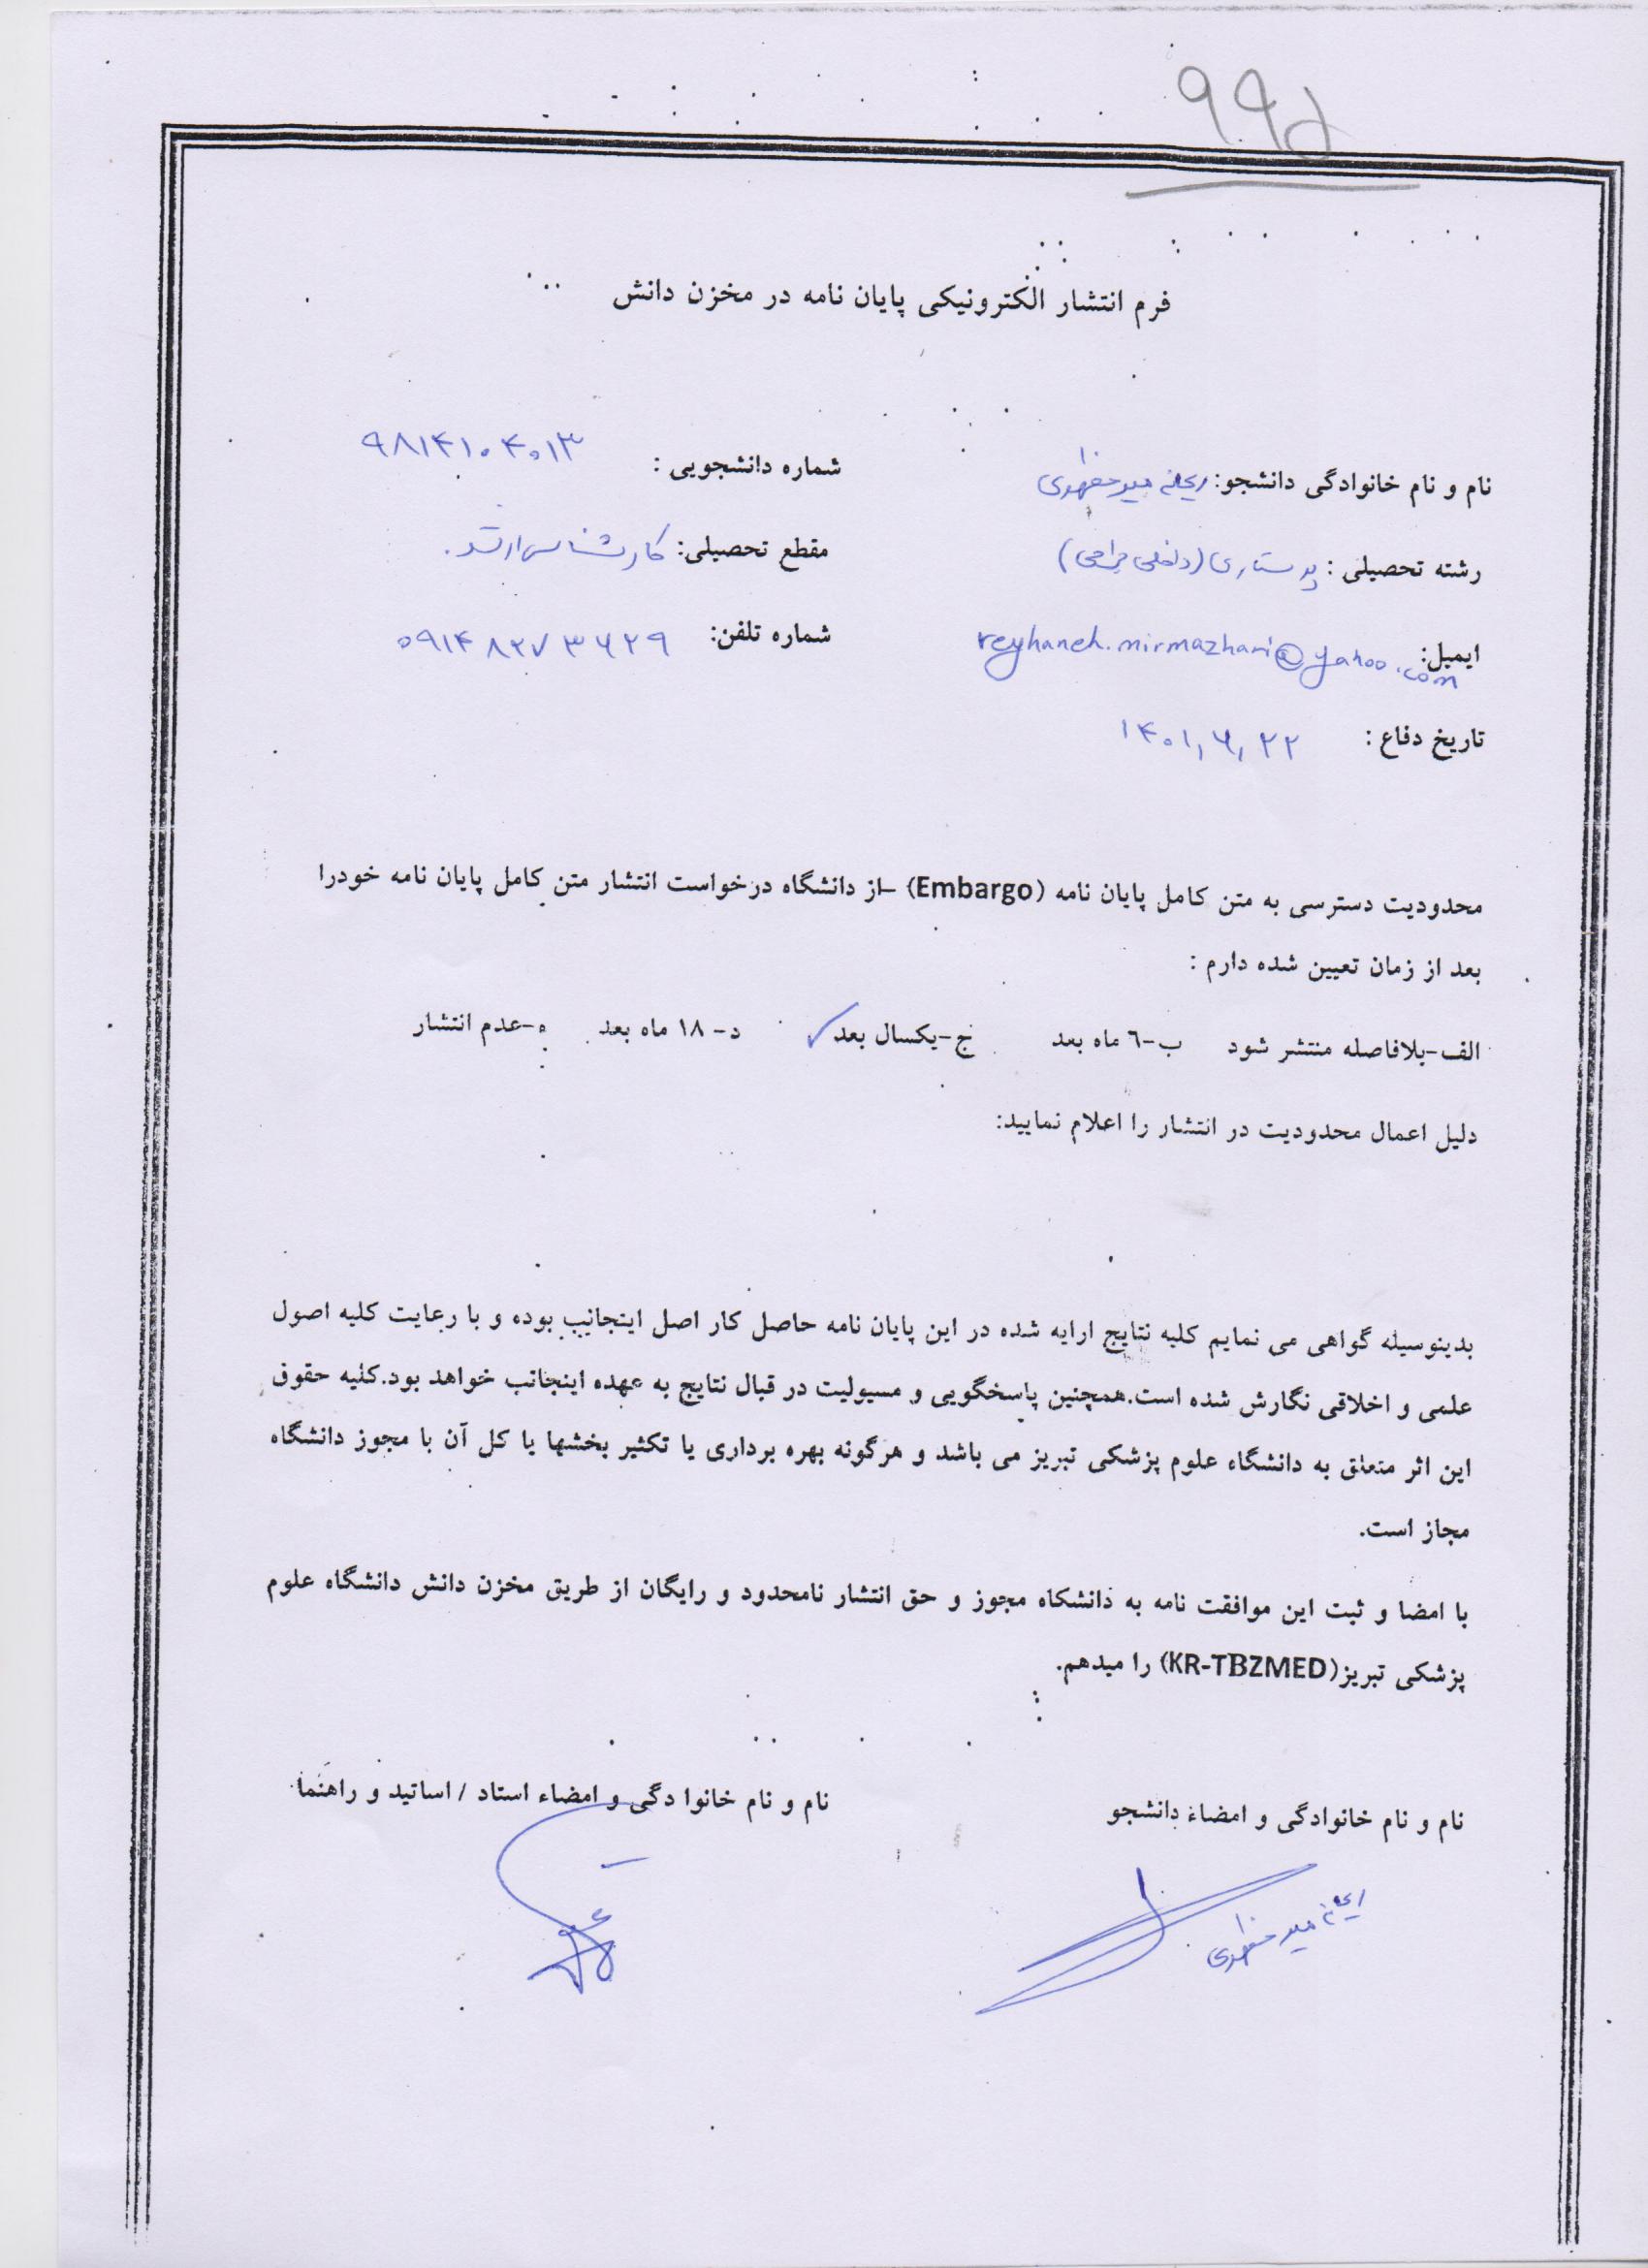 ۹۹۵
فرم انتشار الکترونیکی پایان نامه در مخزن دانش
نام و نام خانوادگی دانشجو: ریحانه میرمظهری شماره دانشجویی : ۹۸۱۴۱۰۴۰۱۳
رشته تحصیلی : پرستاری (داخلی جراحی) مقطع تحصیلی: کارشناسی ارشد.
ایمیل: reyhaneh.mirmazhari@yahoo.com شماره تلفن: ۰۹۱۴۸۲۷۳۶۲۹
تاریخ دفاع : ۱۴۰۱,۶,۲۲
محدودیت دسترسی به متن کامل پایان نامه (Embargo) –از دانشگاه درخواست انتشار متن کامل پایان نامه خودرا
بعد از زمان تعیین شده دارم :
الف-بلافاصله منتشر شود ب-٦ ماه بعد ج-یکسال بعد ✓ د- ۱۸ ماه بعد ه-عدم انتشار
دلیل اعمال محدودیت در انتشار را اعلام نمایید:
بدینوسیله گواهی می نمایم کلیه نتایج ارایه شده در این پایان نامه حاصل کار اصل اینجانب بوده و با رعایت کلیه اصول
علمی و اخلاقی نگارش شده است.همچنین پاسخگویی و مسیولیت در قبال نتایج به عهده اینجانب خواهد بود.کلیه حقوق
این اثر متعلق به دانشگاه علوم پزشکی تبریز می باشد و هرگونه بهره برداری یا تکثیر بخشها یا کل آن با مجوز دانشگاه
مجاز است.
با امضا و ثبت این موافقت نامه به دانشکاه مجوز و حق انتشار نامحدود و رایگان از طریق مخزن دانش دانشگاه علوم
پزشکی تبریز(KR-TBZMED) را میدهم.
نام و نام خانوادگی و امضاء دانشجو نام و نام خانوا دگی و امضاء استاد / اساتید و راهنما
ریحانه میرمظهری